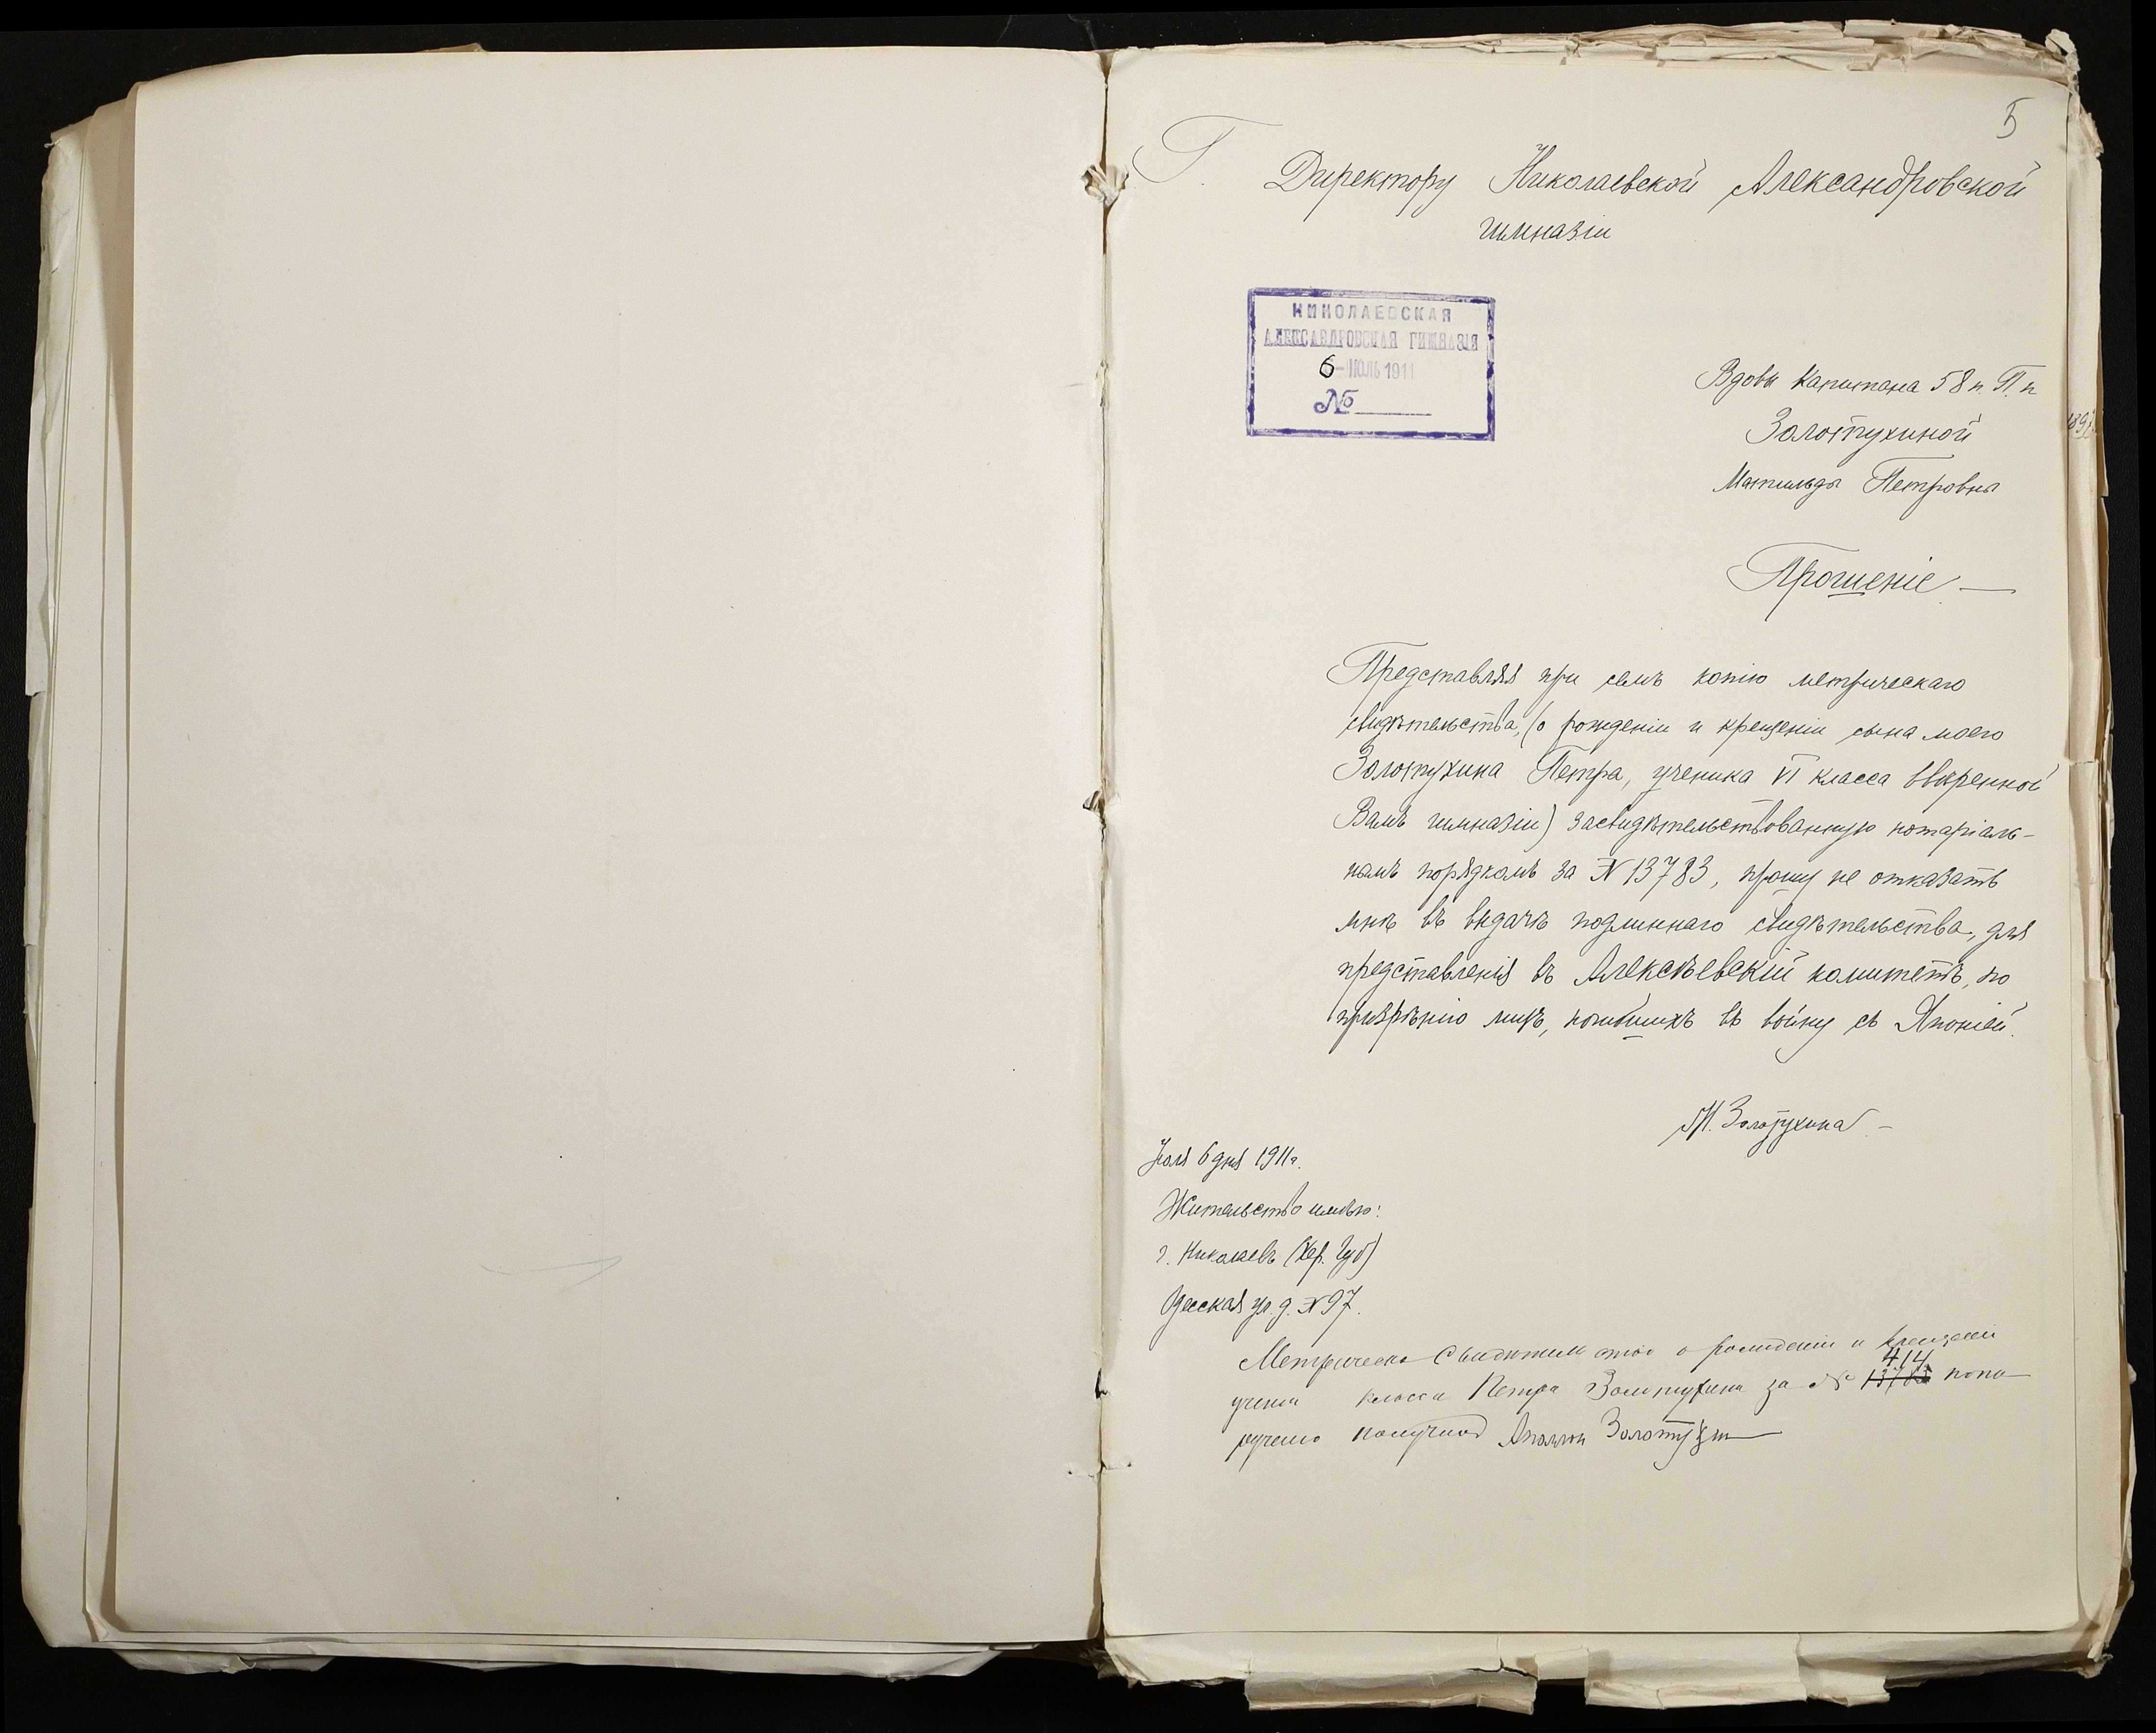 5
Г. Директору Николаевской Александровской
гимназіи
НИКОЛАЕВСКАЯ
АЛЕКСАНДРОВСКАЯ ГИМНАЗІЯ
6 - ІЮЛЬ 1911
№
Вдовы Капитана 58 п. П. п
Золотухиной
Матильды Петровны
Прошеніе
Представляя при семъ копію метрическаго
свидѣтельства, (о рожденіи и крещеніи сына моего
Золотухина Петра, ученика VI класса ввѣренной
Вамъ гимназіи) засвидѣтельствованную нотаріаль-
нымъ порядкомъ за № 13783, прошу не отказать
мнѣ въ выдачѣ подлиннаго свидѣтельства, для
представленія въ Алексѣевскій комитетъ, по
призрѣнію лицъ, погибшихъ въ войну съ Японіей.
М. Золотухина
Іюля 6 дня 1911 г.
Жительство имѣю:
г. Николаевъ (Хер. Губ)
Одесская ул. д. № 97.
Метрическо свидѣтельство о рожденіи и крещеніи
414
класса Петра Золотухина за № 13783
получилъ Золотухин